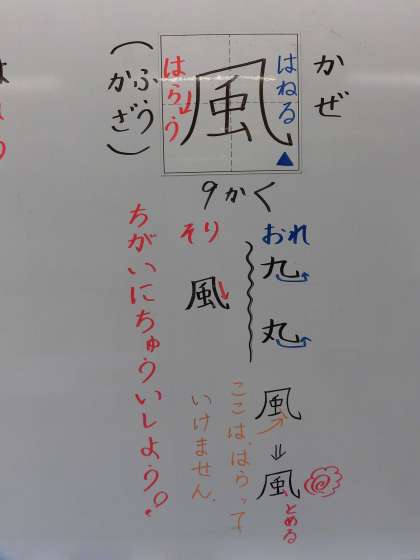 かぜ
はねる
風
はらう
(ふう
かざ)
9かく
おれ
九
丸
そり
風
ちがいにちゅういしよう。
風
⇓
風
とめる
ここは、はらって
いけません。